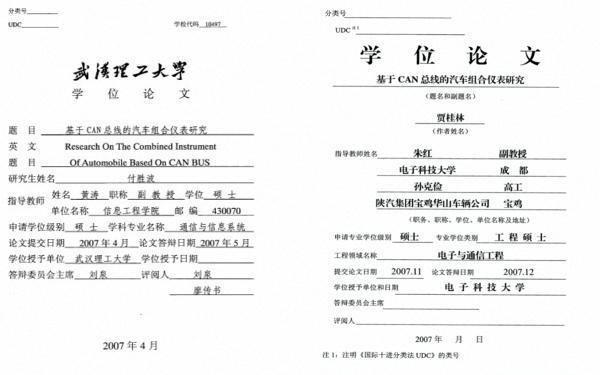 分类号
UDC
学校代码 10497
武汉理工大学
学位论文
题 目 基于CAN总线的汽车组合仪表研究
英 文 Research On The Combined Instrument
题 目 Of Automobile Based On CAN BUS
研究生姓名 付胜波
指导教师 姓名 黄涛 职称 副教授 学位 硕士
单位名称 信息工程学院 邮编 430070
申请学位级别 硕士 学科专业名称 通信与信息系统
论文提交日期 2007年4月 论文答辩日期 2007年5月
学位授予单位 武汉理工大学 学位授予日期
答辩委员会主席 刘泉 评阅人 刘泉
廖传书
2007年4月
分类号
UDC 注1
学位论文
基于CAN总线的汽车组合仪表研究
(题名和副题名)
贾桂林
(作者姓名)
指导教师姓名 朱红 副教授
电子科技大学 成都
孙克俭 高工
陕汽集团宝鸡华山车辆公司 宝鸡
(职务、职称、学位、单位名称及地址)
申请专业学位级别 硕士 专业学位类别 工程硕士
工程领域名称 电子与通信工程
提交论文日期 2007.11 论文答辩日期 2007.12
学位授予单位和日期 电子科技大学
答辩委员会主席
评阅人
2007年 月 日
注1:注明《国际十进分类法UDC》的类号